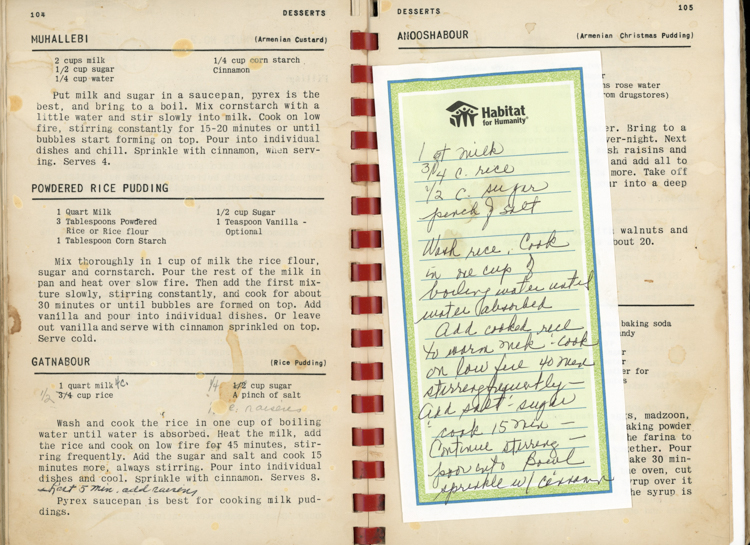 104
DESSERTS
MUHALLEBI
(Armenian Custard)
2 cups milk
1/2 cup sugar
1/4 cup water
1/4 cup corn starch
Cinnamon
Put milk and sugar in a saucepan, pyrex is the
best, and bring to a boil. Mix cornstarch with a
little water and stir slowly into milk. Cook on low
fire, stirring constantly for 15-20 minutes or until
bubbles start forming on top. Pour into individual
dishes and chill. Sprinkle with cinnamon, when serv-
ing. Serves 4.
POWDERED RICE PUDDING
1 Quart Milk
3 Tablespoons Powdered
Rice or Rice flour
1 Tablespoon Corn Starch
1/2 cup Sugar
1 Teaspoon Vanilla -
Optional
Mix thoroughly in 1 cup of milk the rice flour,
sugar and cornstarch. Pour the rest of the milk in
pan and heat over slow fire. Then add the first mix-
ture slowly, stirring constantly, and cook for about
30 minutes or until bubbles are formed on top. Add
vanilla and pour into individual dishes. Or leave
out vanilla and serve with cinnamon sprinkled on top.
Serve cold.
GATNABOUR
(Rice Pudding)
1 quart milk 4c.
1/2 3/4 cup rice
1/4 1/2 cup sugar
A pinch of salt
raisins
Wash and cook the rice in one cup of boiling
water until water is absorbed. Heat the milk, add
the rice and cook on low fire for 45 minutes, stir-
ring frequently. Add the sugar and salt and cook 15
minutes more, always stirring. Pour into individual
dishes and cool. Sprinkle with cinnamon. Serves 8.
5 min. add raisins
Pyrex saucepan is best for cooking milk pud-
dings.
DESSERTS
105
ANOOSHABOUR
(Armenian Christmas Pudding)
r
ns rose water
rom drugstores)
er. Bring to a
ver-night. Next
sh raisins and
and add all to
more. Take off
ur into a deep
walnuts and
bout 20.
baking soda
ndy
r
r
er for
s
ts, madzoon,
aking powder
he farina to
ether. Pour
ake 30 min-
e oven, cut
yrup over it
he syrup is
Habitat
for Humanity®
1 qt milk
3/4 c. rice
1/2 c. sugar
pinch of salt
Wash rice. Cook
in one cup of
boiling water until
water absorbed
Add cooked rice
to warm milk - cook
on low fire 40 min
stirring frequently -
add salt - sugar
cook 15 min -
Continue stirring -
pour into Bowl
sprinkle w/ cinnamon